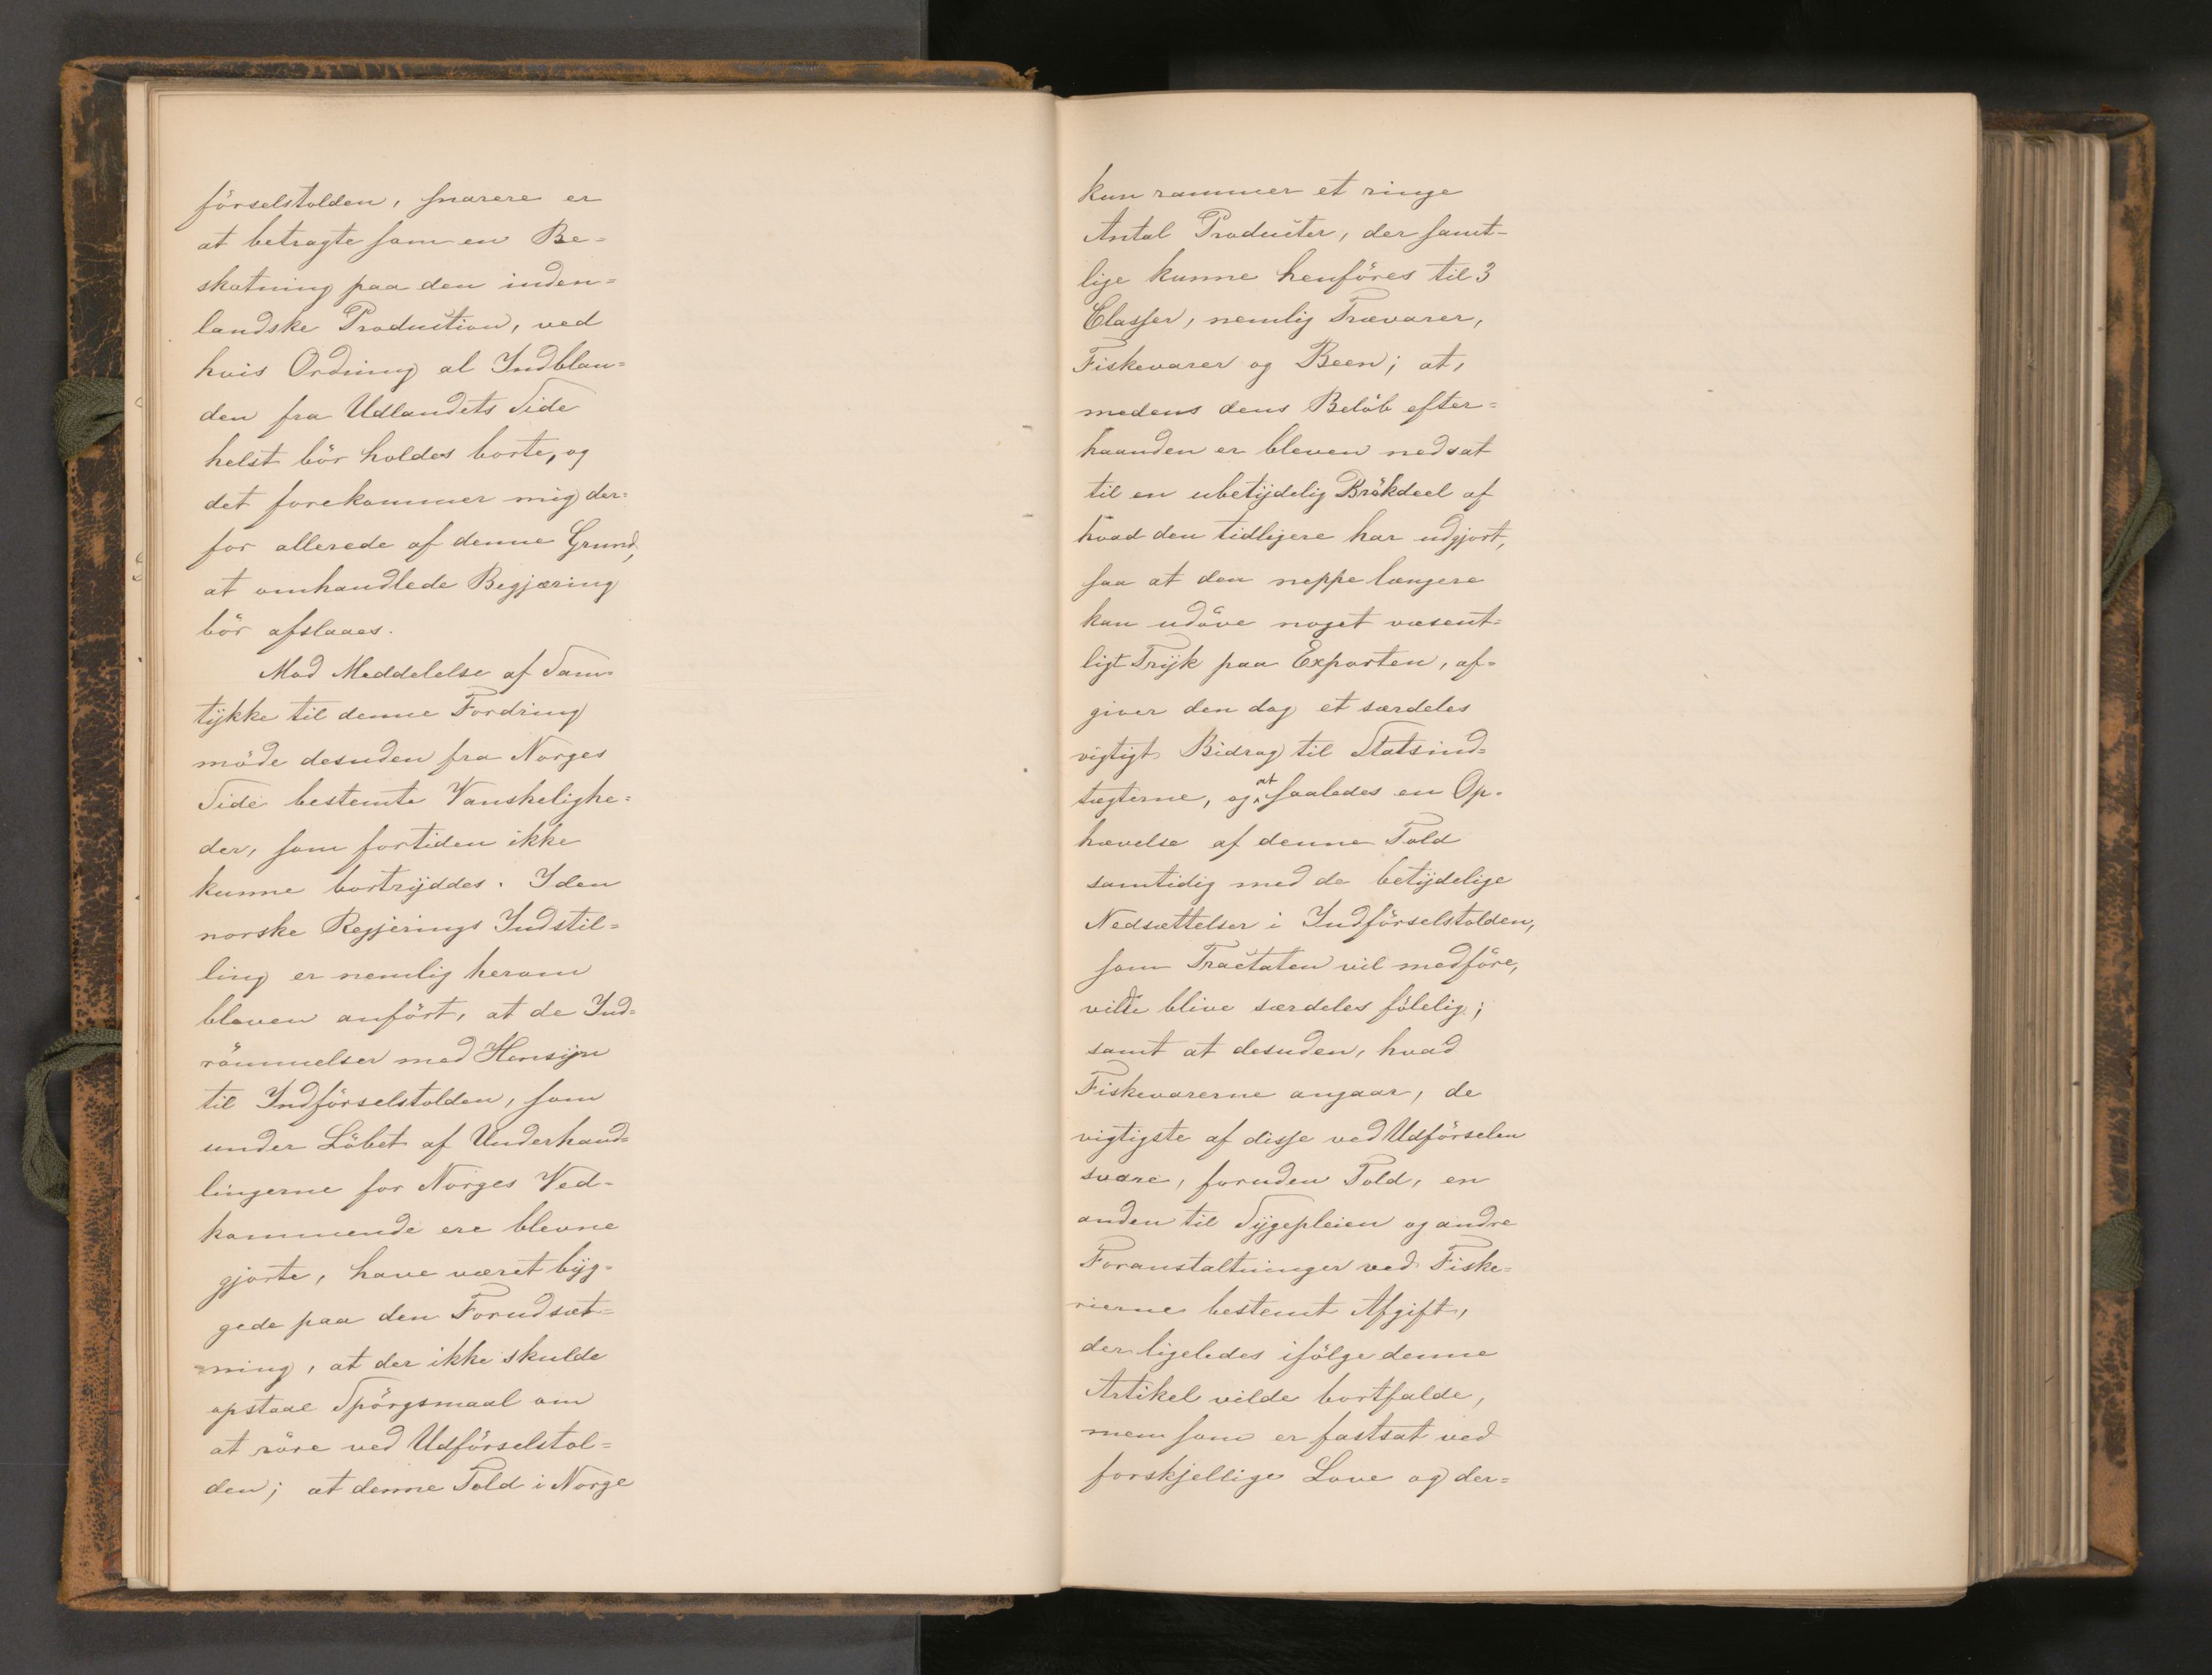 förselstolden, snarere er
at betragte som en Be=
skatning paa den inden=
landske Production, ved
hvis Ordning al Indblan=
den fra Udlandets Side
helst bör holdes borte, og
det forekommer mig der=
for allerede af denne Grund,
at omhandlede Begjæring
bör afslaaes.
Mod Meddelelse af Sam=
tÿkke til denne Fordring
möde desuden fra Norges
Side bestemte Vanskelighe=
der, som fortiden ikke
kunne bortrÿddes. I den
norske Regjerings Indstil=
ling er nemlig herom
bleven anfört, at de Ind=
römmelser med Hensÿn
til Indförselstolden, som
under Löbet af Underhand=
lingerne for Norges Ved=
kommende ere blevne
gjorte, have været bÿg=
gede paa den Forudsæt=
ning, at der ikke skulde
opstaae Spörgsmaal om
at röre ved Udförselstol=
den; at denne Told i Norge
kun rammer et ringe
Antal Producter, der samt-
lige kunne henföres til 3
Classer, nemlig Trævarer,
Fiskevarer og Been; at,
medens dens Belöb efter=
haanden er bleven nedsat
til en ubetÿdelig Brökdeel af
hvad den tidligere har udgjort,
saa at den neppe længere
kan udöve noget væsent=
ligt Trÿk paa Exporten, af=
giver den dog et særdeles
vigtigt Bidrag til Statsind=
tægterne, og at saaledes en Op=
hævelse af denne Told
samtidig med de betÿdelige
Nedsættelser i Indförselstolden,
som Tractaten vil medföre,
vilde blive særdeles fölelig;
samt at desuden, hvad
Fiskevarerne angaar, de
vigtigste af disse ved Udförselen
svare, foruden Told, en
anden til Sÿgepleien og andre
Foranstaltninger ved Fiske=
rierne bestemt Afgift,
der ligeledes ifölge denne
Artikel vilde bortfalde,
men som er fastsat ved
forskjellige Love og der=